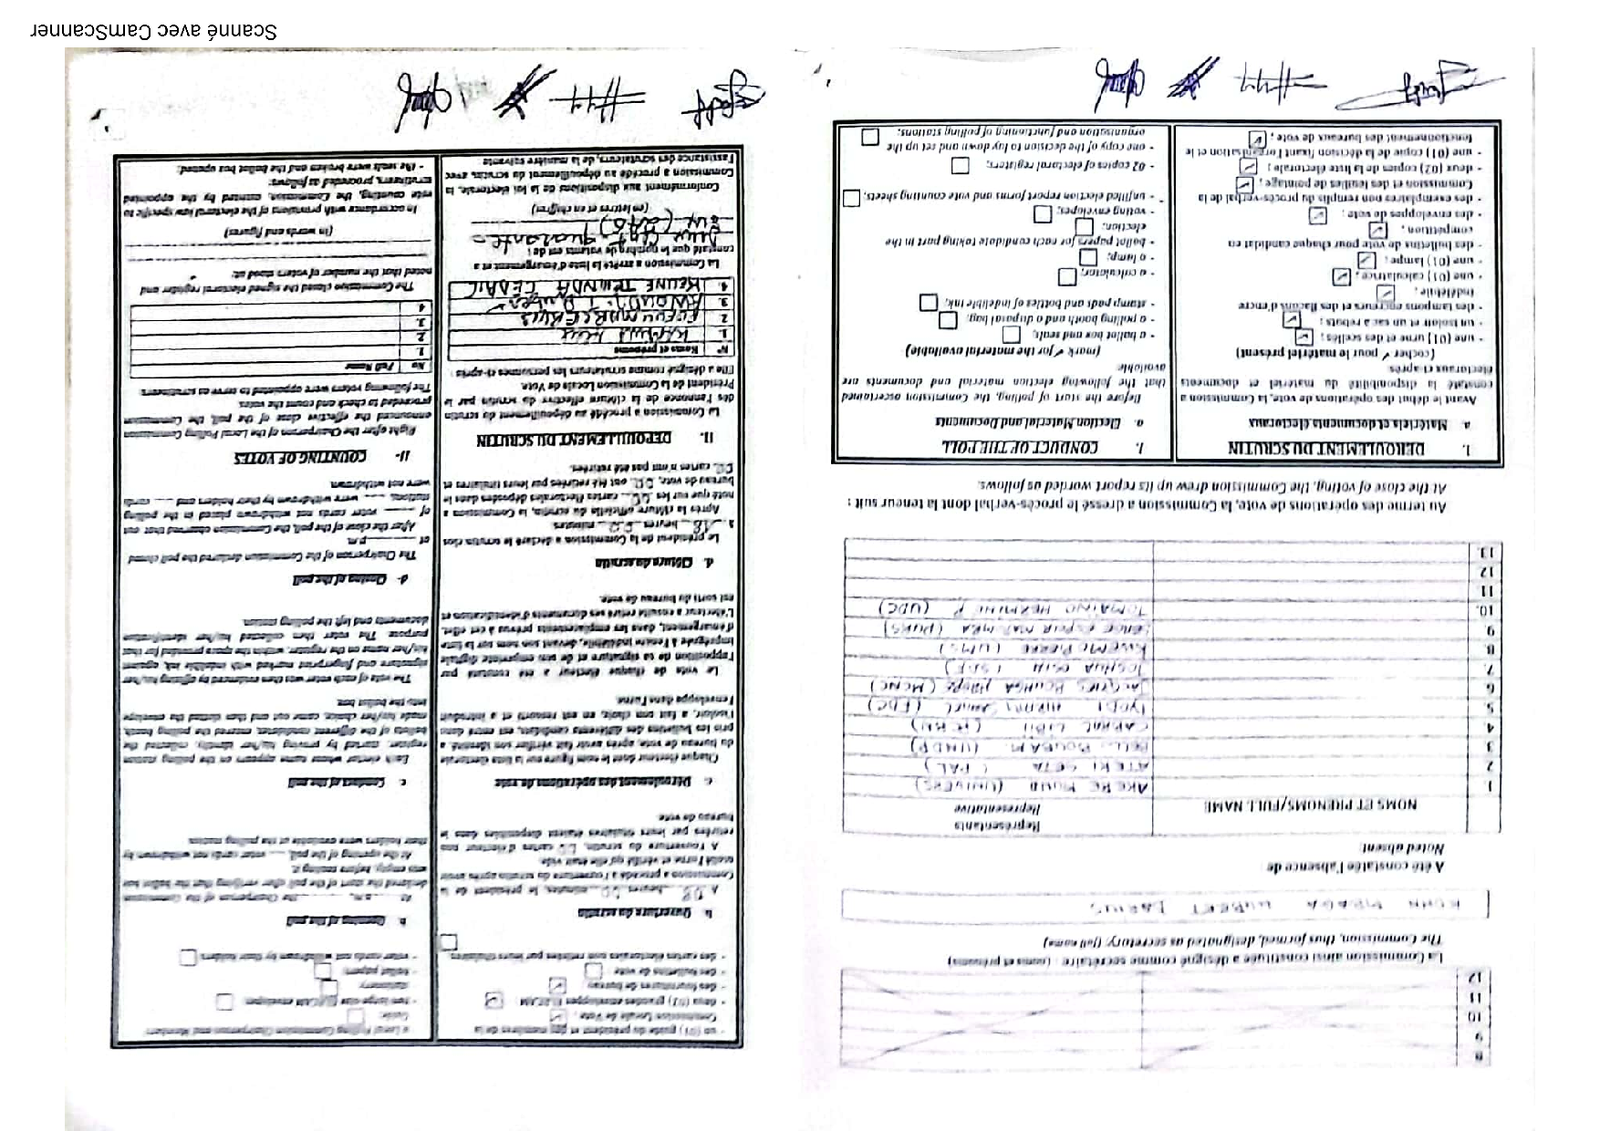 8
9
10
11
12
La Commission ainsi constituée a désigné comme secrétaire : (noms et prénoms)
The Commission, thus formed, designated as secretary: (full name)
HUBERT DARIUS
A été constatée l'absence de
Noted absent
NOMS ET PRENOMS/FULL NAME
Représentants
Representative
1 AKERE MUNA (UNIVERS)
2 ATEKI SETA (PAL)
3 BELLO BOUBA M. (UNDP)
4 CABRAL LIBII (PCRN)
5 IYODI HIRAM SAMUEL (FDC)
6 JACQUES BOUGHA HAGBE (MCNC)
7. JOSHUA OSIH (SDF)
8 KWEMO PIERRE (UMS)
9 (PURS)
10. TOMAINO HERMINE P (UDC)
11.
12
13.
Au terme des opérations de vote, la Commission a dressé le procès-verbal dont la teneur suit :
At the close of voting, the Commission drew up its report worded as follows.
I. DEROULEMENT DU SCRUTIN
a Matériels et documents électoraux
Avant le début des opérations de vote, la Commission a
constaté la disponibilité du matériel et documents
électoraux ci-après
(cocher ✓ pour le matériel présent)
- une (01) urne et des scellés ; ✓
- un isoloir et un sac à rebuts ; ✓
- des tampons encreurs et des flacons d'encre
indélébile, ✓
- une (01) calculatrice, ✓
- une (01) lampe ; ✓
- des bulletins de vote pour chaque candidat en
compétition, ✓
- des enveloppes de vote ; ✓
- des exemplaires non remplis du procès-verbal de la
Commission et des feuilles de pointage ; ✓
- deux (02) copies de la liste électorale ; ✓
- une (01) copie de la décision fixant l'organisation et le
fonctionnement des bureaux de vote ; ✓
I. CONDUCT OF THE POLL
a. Election Material and Documents
Before the start of polling, the Commission ascertained
that the following election material and documents are
available
(mark ✓ for the material available)
- a ballot box and seals;
- a polling booth and a disposal bag;
- stamp pads and bottles of indelible ink,
- a calculator;
- a lamp;
- ballot papers for each candidate taking part in the
election;
- voting envelopes;
- unfilled election report forms and vote counting sheets;
- 02 copies of electoral registers;
- one copy of the decision to lay down and set up the
organisation and functioning of polling stations;
- un (01) guide du président et des membres de la
Commission Locale de Vote ; ✓
- deux (02) grandes enveloppes ELECAM ✓
- des fournitures de bureau ✓
- des bulletins de vote
- des cartes électorales non retirées par leurs titulaires.
b. Ouverture du scrutin
A 08 heures 00 minutes, le président de la
Commission a procédé à l'ouverture du scrutin après avoir
scellé l'urne et vérifié qu'elle était vide
A l'ouverture du scrutin, 00 cartes d'électeur non
retirées par leurs titulaires étaient disponibles dans le
bureau de vote
c. Déroulement des opérations de vote
Chaque électeur dont le nom figure sur la liste électorale
du bureau de vote, après avoir fait vérifier son identité, a
pris les bulletins des différents candidats, est entré dans
l'isoloir, a fait son choix, en est ressorti et a introduit
l'enveloppe dans l'urne.
Le vote de chaque électeur a été constaté par
l'apposition de sa signature et de son empreinte digitale
imprégnée à l'encre indélébile, devant son nom sur la liste
d'émargement, dans les emplacements prévus à cet effet.
L'électeur a ensuite retiré ses documents d'identification et
est sorti du bureau de vote.
d. Clôture du scrutin
Le président de la Commission a déclaré le scrutin clos
à 18 heures 00 minutes
Après la clôture officielle du scrutin, la Commission a
noté que sur les 00 cartes électorales déposées dans le
bureau de vote, 00 ont été retirées par leurs titulaires et
00 cartes n'ont pas été retirées.
II. DEPOUILLEMENT DU SCRUTIN
La Commission a procédé au dépouillement du scrutin
dès l'annonce de la clôture effective du scrutin par le
Président de la Commission Locale de Vote.
Elle a désigné comme scrutateurs les personnes ci-après :
N° Noms et prénoms
1.
2
3.
4. TCHINDA CEDRIC
La Commission a arrêté la liste d'émargement et a
constaté que le nombre de votants est de :
Deux Cent quarante
(en lettres et en chiffres)
Conformément aux dispositions de la loi électorale, la
Commission a procédé au dépouillement du scrutin avec
l'assistance des scrutateurs, de la manière suivante
- a Local Polling Commission Chairperson and Members
Guide;
- two large-size ELECAM envelopes
- stationery
- ballot papers
- voter cards not withdrawn by their holders
b. Opening of the poll
At ... a.m., ... the Chairperson of the Commission
declared the start of the poll after verifying that the ballot box
was empty, before sealing it.
At the opening of the poll, ... voter cards not withdrawn by
their holders were available at the polling station.
c. Conduct of the poll
Each elector whose name appears on the polling station
register, started by proving his/her identity, collected the
ballots of the different candidates, entered the polling booth,
made his/her choice, came out and then slotted the envelope
into the ballot box.
The vote of each voter was then evidenced by affixing his/her
signature and fingerprint marked with indelible ink, against
his/her name on the register, within the space provided for that
purpose. The voter then collected his/her identification
documents and left the polling station.
d- Closing of the poll
The Chairperson of the Commission declared the poll closed
at ... p.m.
After the close of the poll, the Commission observed that out
of ... voter cards not withdrawn placed in the polling
stations, ... were withdrawn by their holders and ... cards
were not withdrawn.
II- COUNTING OF VOTES
Right after the Chairperson of the Local Polling Commission
announced the effective close of the poll, the Commission
proceeded to check and count the votes.
The following voters were appointed to serve as scrutineers:
No Full Name
1.
2
3.
4
The Commission closed the signed electoral register and
noted that the number of voters stood at:
(in words and figures)
In accordance with provisions of the electoral law specific to
vote counting, the Commission, assisted by the appointed
scrutineers, proceeded as follows:
- the seals were broken and the ballot box opened;
Scanné avec CamScanner